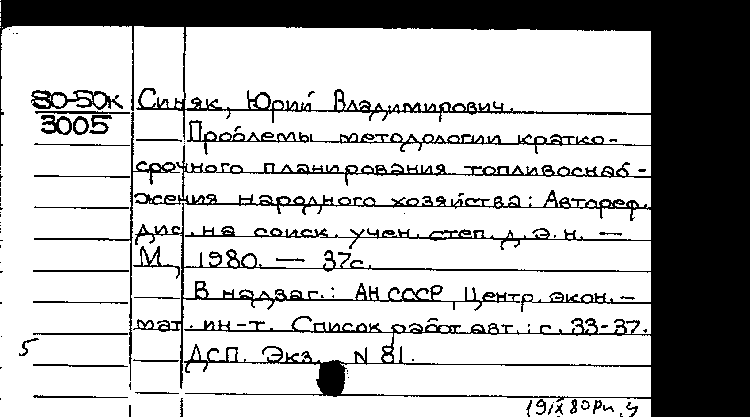 80-50к Синяк, Юрий Владимирович.
3005
Проблемы методологии кратко-
срочного планирования топливоснаб-
жения народного хозяйства: Автореф.
дис. на соиск. учен. степ. д.э.н. —
М., 1980. — 37с.
В надзаг.: АН СССР, Центр. экон.-
мат. ин-т. Список работ авт.: с. 33-37.
5 ДСП. Экз. N 81.